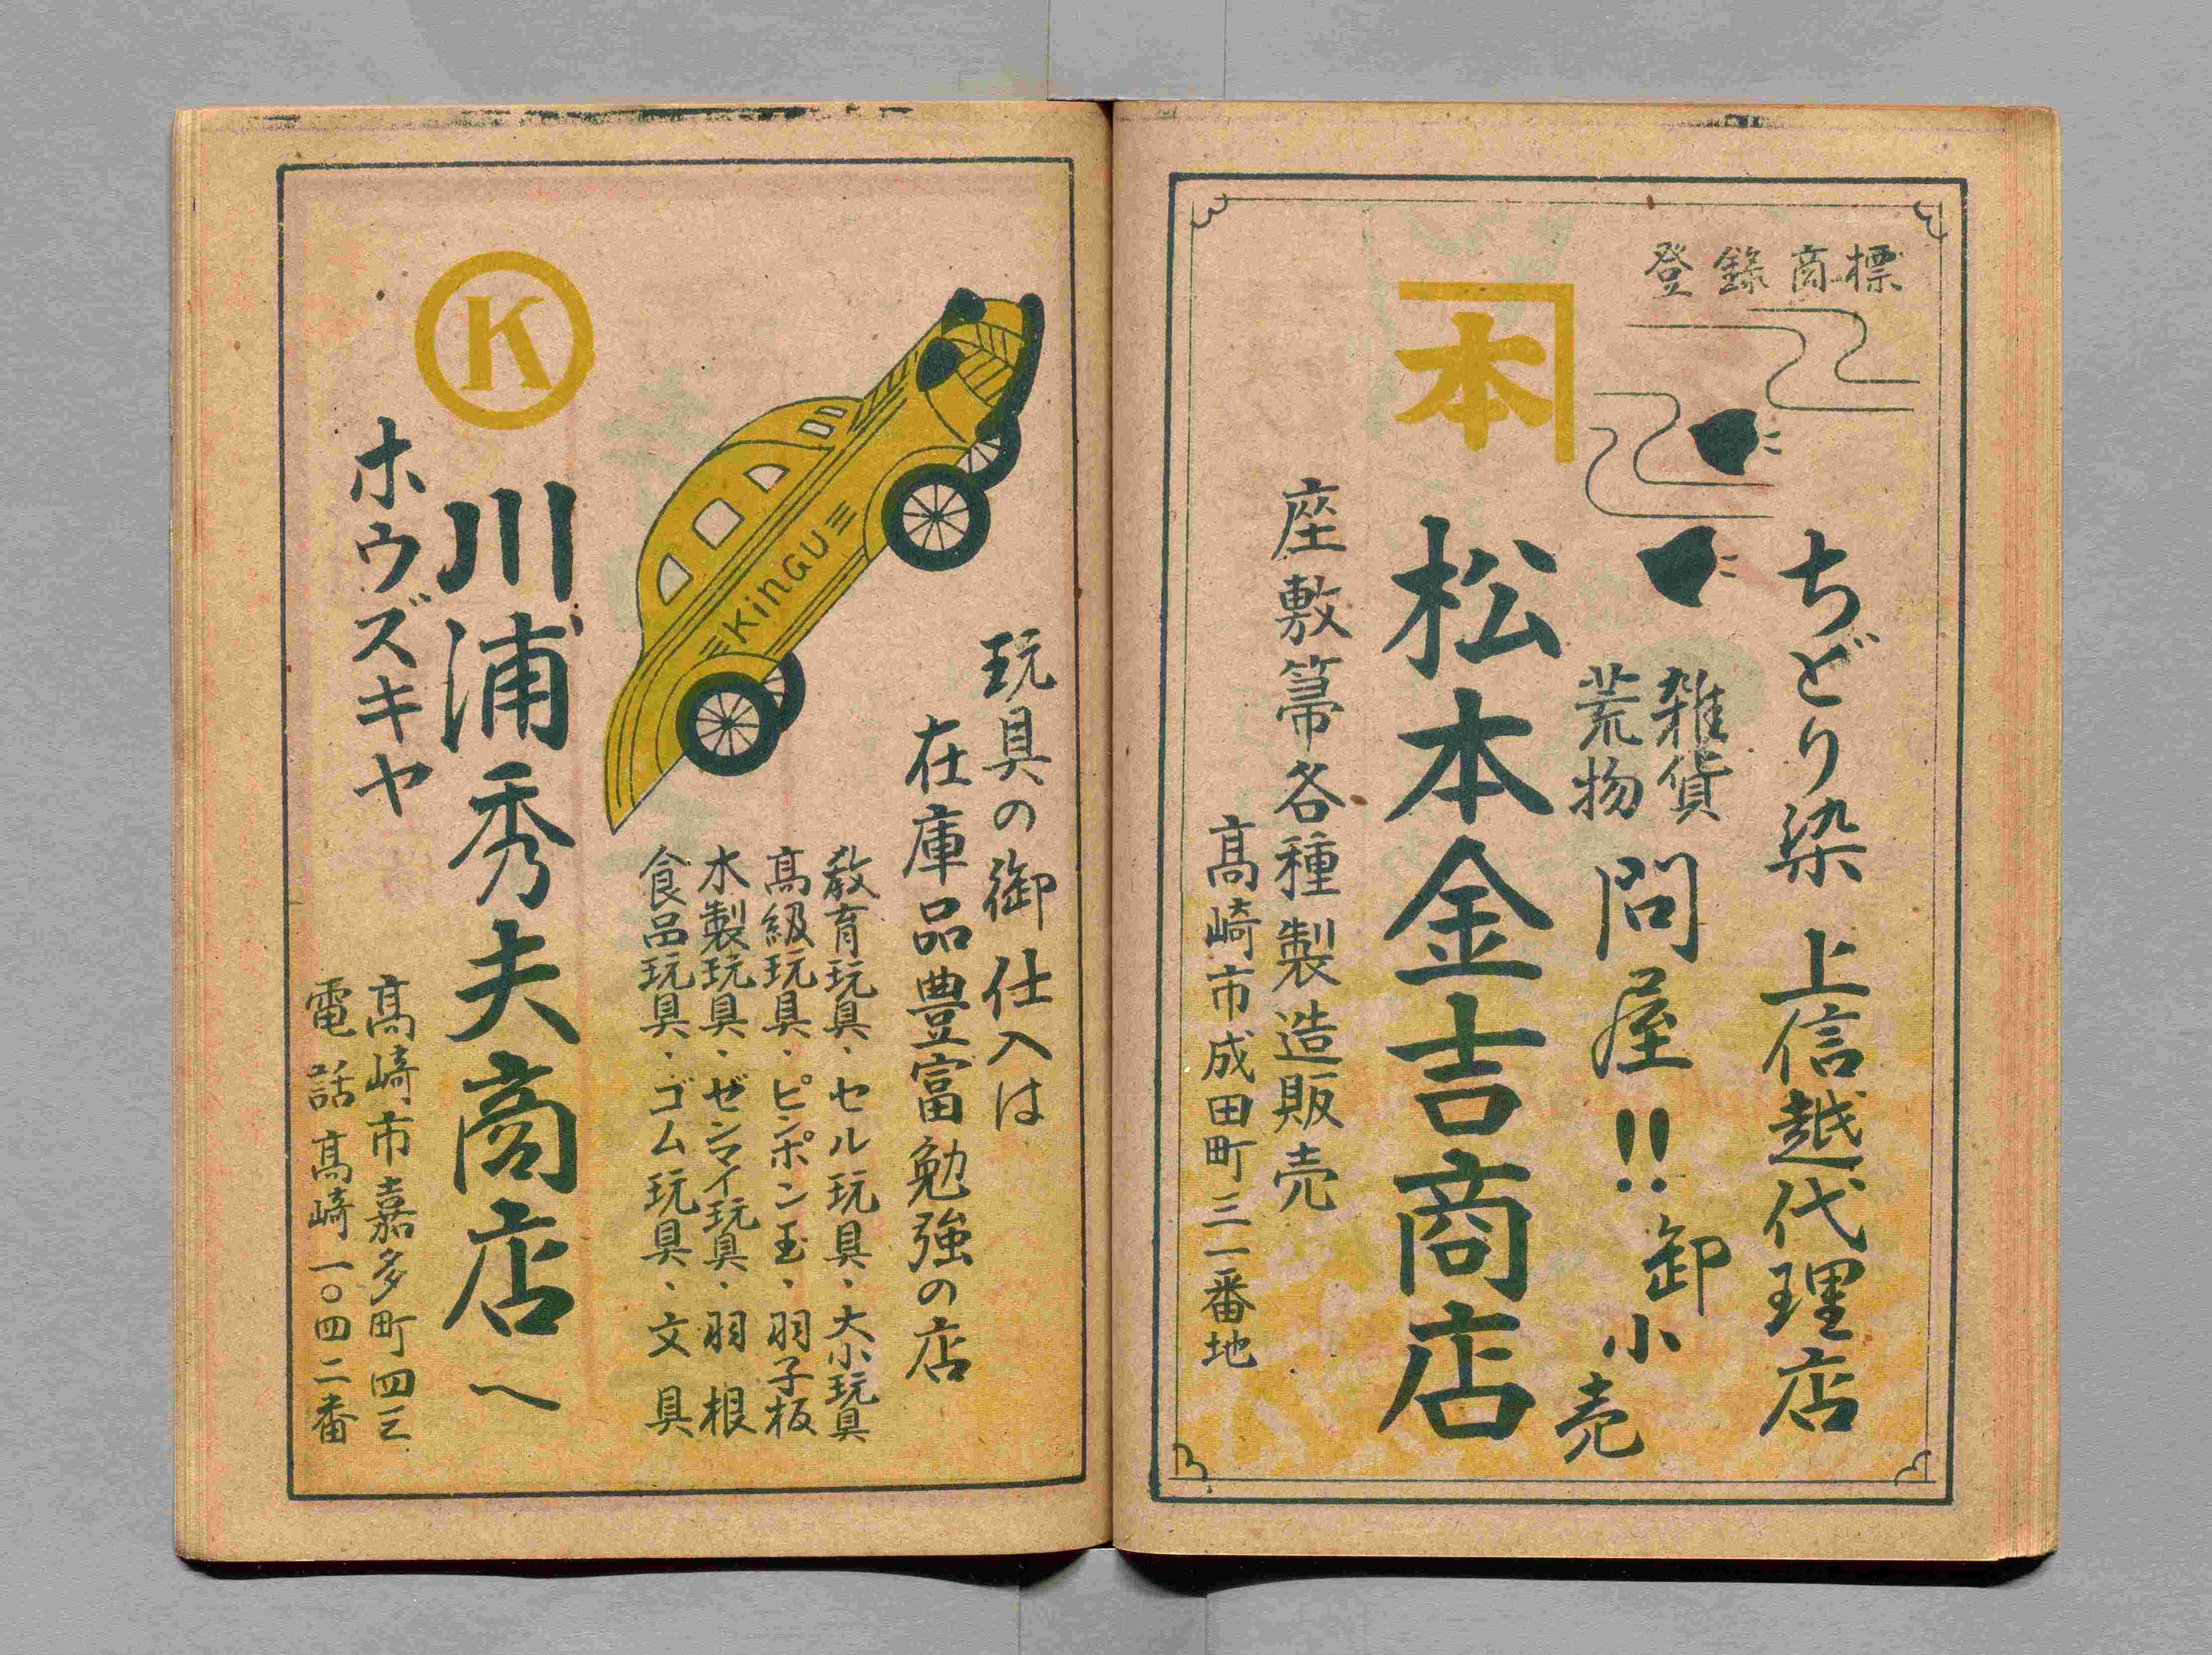 登録商標
ちどり染 上信越代理店
雑貨
荒物
問屋!! 卸小売
本
松本金吉商店
座敷箒各種製造販売
髙崎市成田町三一番地
玩具の御仕入は
在庫品豊富勉強の店
KinGU
教育玩具、セル玩具、大小玩具
髙級玩具、ピンポン玉、羽子板
木製玩具、ゼンマイ玩具、羽根
食品玩具、ゴム玩具、文具
K
川浦秀夫商店へ
ホウズキヤ
髙崎市嘉多町四三
電話髙崎一〇四二番